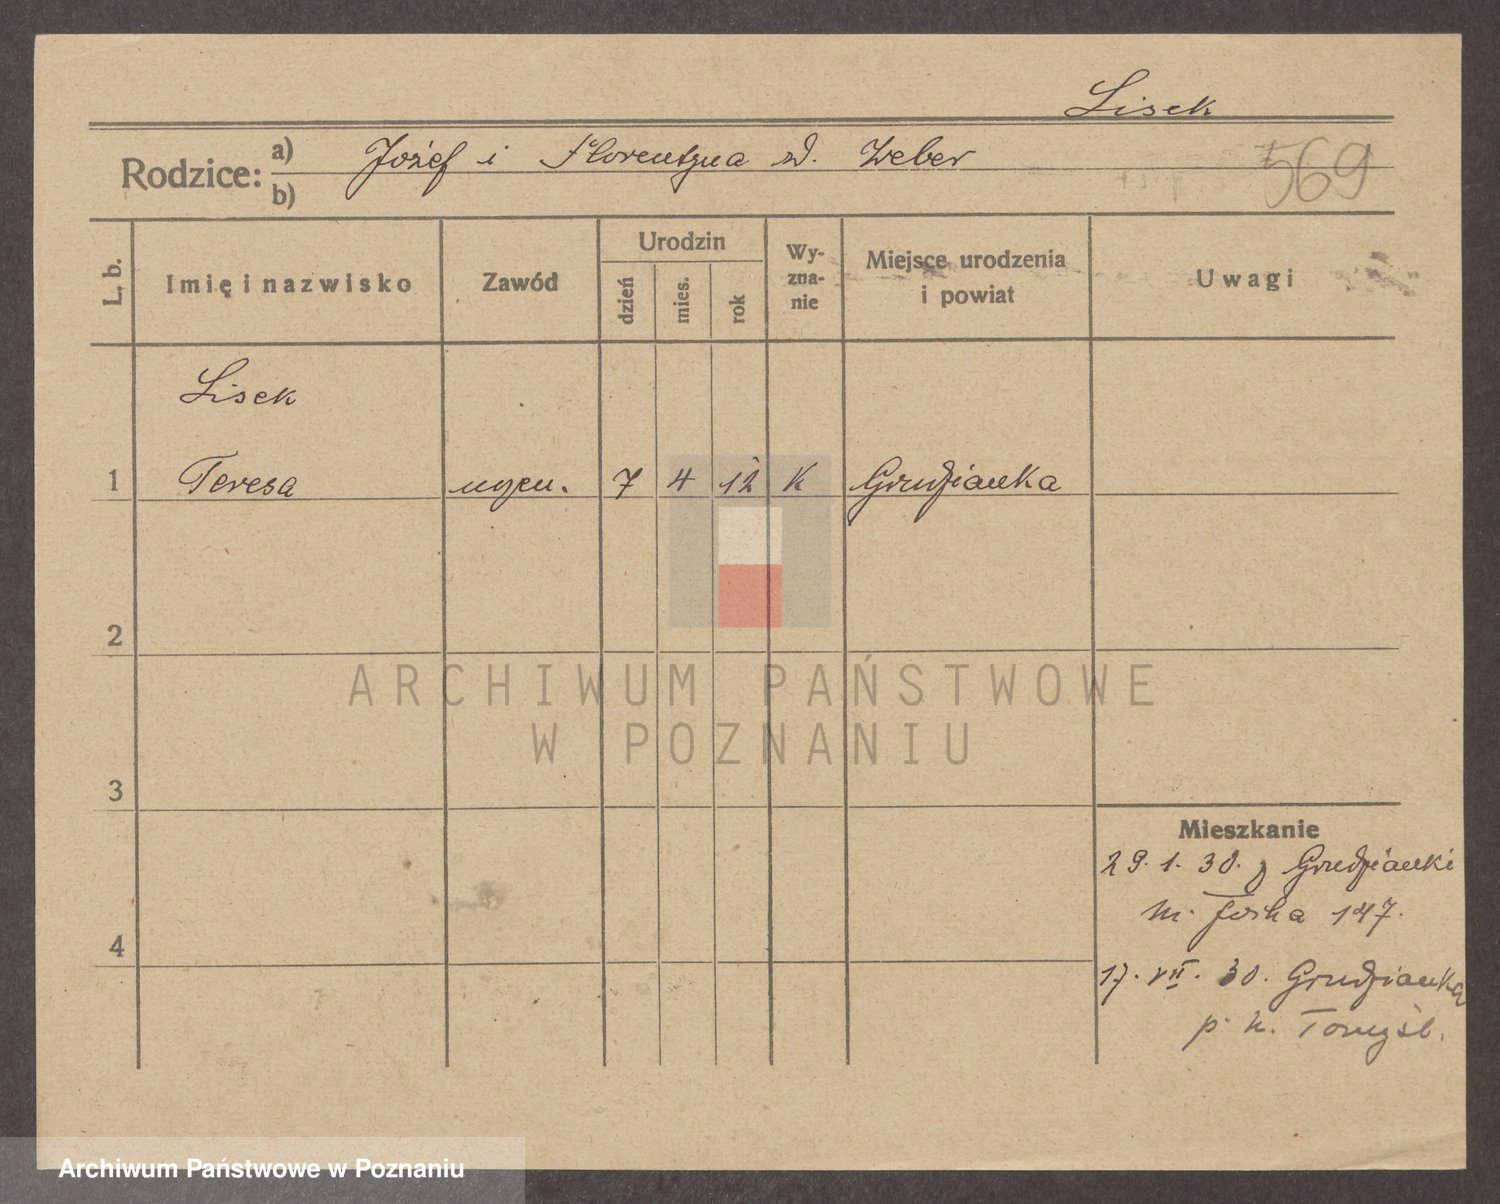 Lisek
Rodzice:
a) Józef i Florentyna z d. Weber
b)
569
L. b.
Imię i nazwisko
Zawód
Urodzin
dzień
mies.
rok
Wy-
zna-
nie
Miejsce urodzenia
i powiat
Uwagi
Lisek
1 Teresa uczen. 7 4 12 K Grudzianka
2
3
4
Mieszkanie
29. 1. 30. z Grudzianki
147.
17. VII. 30. Grudzianka
p. N. Tomyśl.
ARCHIWUM PAŃSTWOWE
W POZNANIU
Archiwum Państwowe w Poznaniu